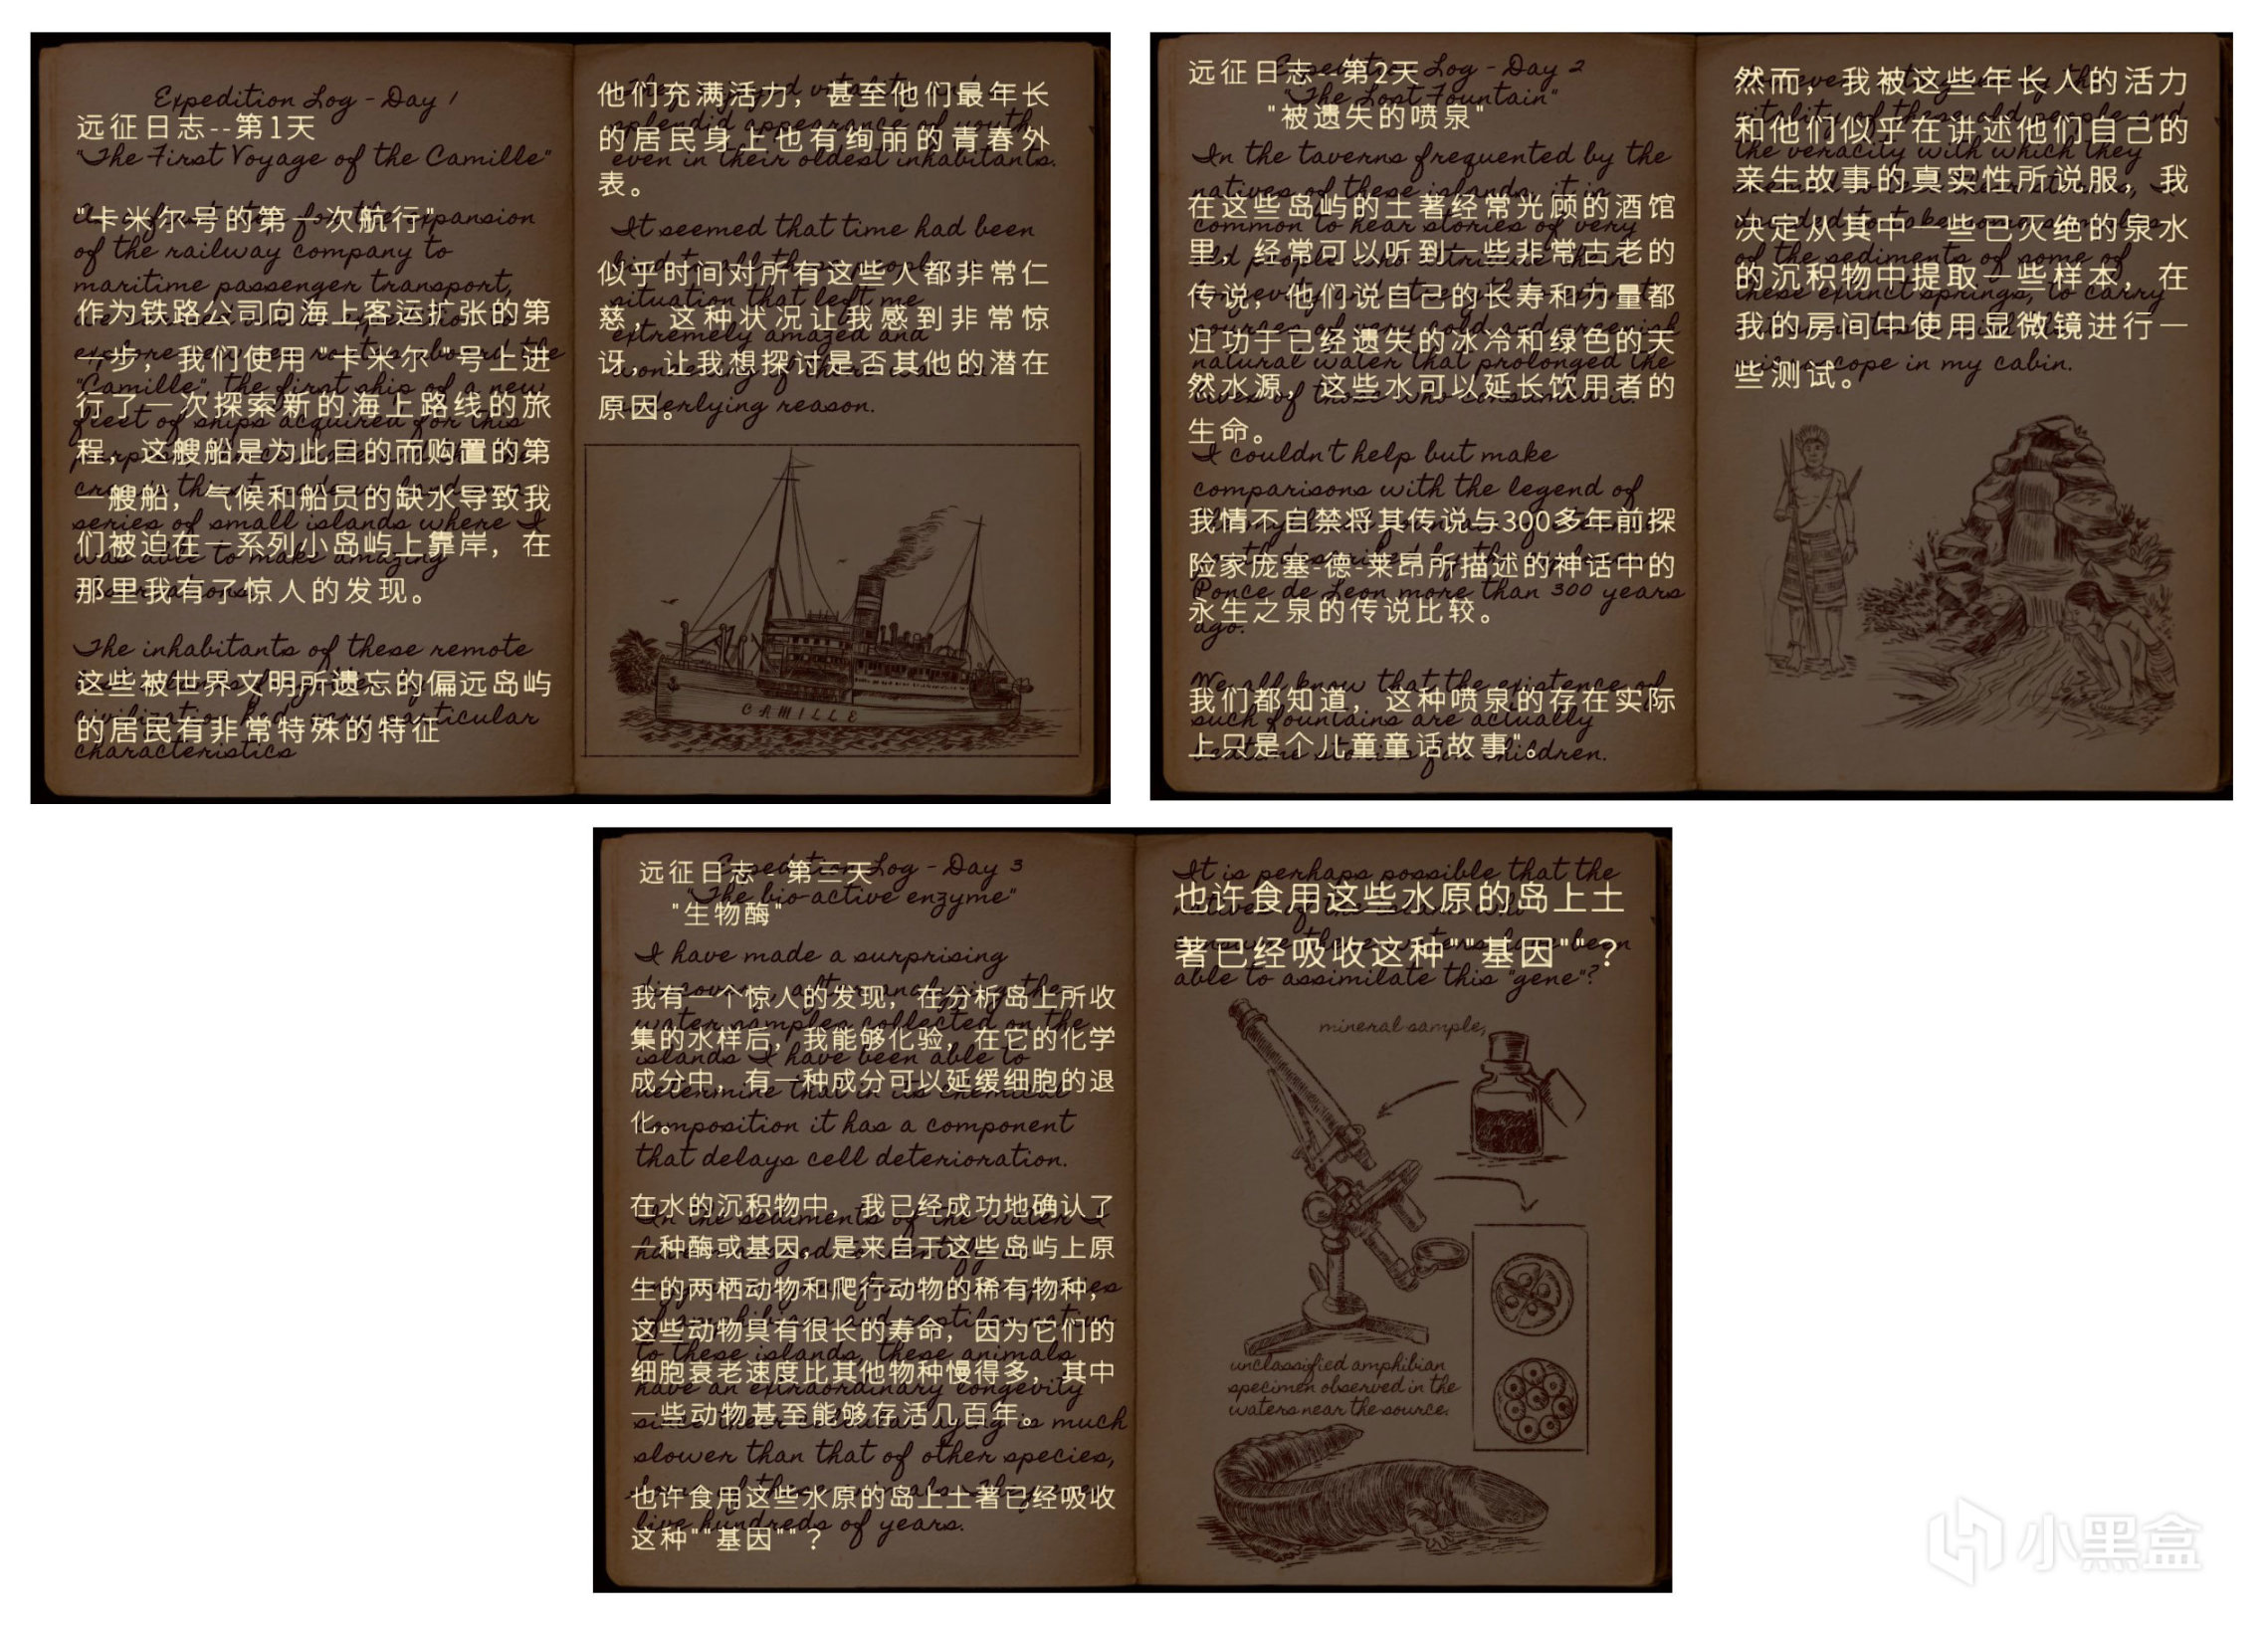 Expedition Log - Day 1
远征日志--第1天
"The First Voyage of the Camille"
"卡米尔号的第一次航行"
of the railway company to
maritime passenger transport,
作为铁路公司向海上客运扩张的第
一步，我们使用 "卡米尔 "号上进
"Camille", the first ship of a new
行了一次探索新的海上路线的旅
fleet of ships acquired for this
程，这艘船是为此目的而购置的第
一艘船，气候和船员的缺水导致我
series of small islands where I
们被迫在一系列小岛屿上靠岸，在
was able to make amazing
那里我有了惊人的发现。
The inhabitants of these remote
这些被世界文明所遗忘的偏远岛屿
的居民有非常特殊的特征
characteristics
他们充满活力，甚至他们最年长
splendid appearance of youth
的居民身上也有绚丽的青春外
even in their oldest inhabitants.
表。
It seemed that time had been
似乎时间对所有这些人都非常仁
situation that left me
慈，这种状况让我感到非常惊
extremely amazed and
讶，让我想探讨是否其他的潜在
原因。
underlying reason.
CAMILLE
远征日志--第2天
Expedition Log - Day 2
"The Lost Fountain"
"被遗失的喷泉"
In the taverns frequented by the
natives of these islands, it is
在这些岛屿的土著经常光顾的酒馆
common to hear stories of very
里，经常可以听到一些非常古老的
传说，他们说自己的长寿和力量都
归功于已经遗失的冰冷和绿色的天
natural water that prolonged the
然水源，这些水可以延长饮用者的
lives of those who consumed it.
生命。
I couldn't help but make
comparisons with the legend of
我情不自禁将其传说与300多年前探
险家庞塞-德-莱昂所描述的神话中的
Ponce de Leon more than 300 years
永生之泉的传说比较。
ago.
We all know that the existence of
我们都知道，这种喷泉的存在实际
such fountains are actually
上只是个儿童童话故事"。
bedtime stories for children.
然而，我被这些年长人的活力
vitality of these old people and
和他们似乎在讲述他们自己的
the veracity with which they
亲生故事的真实性所说服，我
决定从其中一些已灭绝的泉水
of the sediments of some of
的沉积物中提取一些样本，在
these extinct springs, to carry
我的房间中使用显微镜进行一
microscope in my cabin.
些测试。
远征日志--第三天
Expedition Log - Day 3
"The bio-active enzyme"
"生物酶"
I have made a surprising
我有一个惊人的发现，在分析岛上所收
water samples collected on the
集的水样后，我能够化验，在它的化学
islands I have been able to
成分中，有一种成分可以延缓细胞的退
determine that in its chemical
化。
composition it has a component
that delays cell deterioration.
在水的沉积物中，我已经成功地确认了
In the sediments of the water I
一种酶或基因，是来自于这些岛屿上原
生的两栖动物和爬行动物的稀有物种，
这些动物具有很长的寿命，因为它们的
to these islands, these animals
细胞衰老速度比其他物种慢得多，其中
have an extraordinary longevity
一些动物甚至能够存活几百年。
since their cellular aging is much
slower than that of other species,
也许食用这些水原的岛上土著已经吸收
live hundreds of years.
这种""基因""？
It is perhaps possible that the
也许食用这些水原的岛上土
著已经吸收这种""基因""？
able to assimilate this "gene"?
mineral sample,
unclassified amphibian
specimen observed in the
waters near the source.
小黑盒